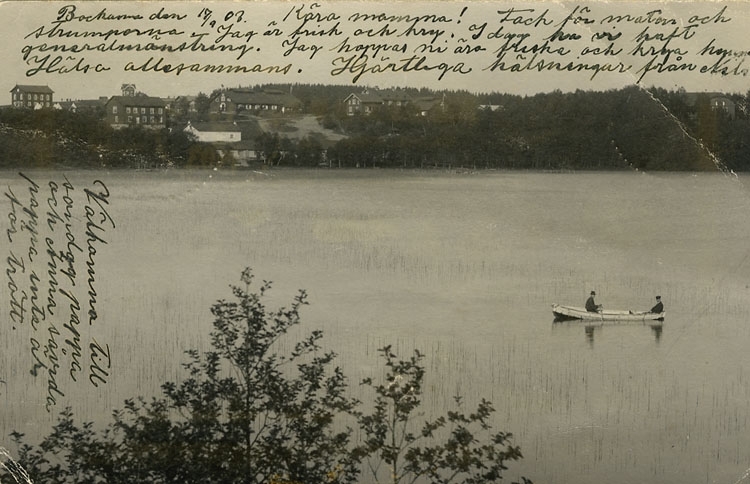 Bockarna den 17/9 03. Kära mamma! Tack för maten och
strumporna. Jag är frisk och kry. I dag ha vi haft
generalmönstring. Jag hoppas ni äro friska och krya
Hälsa allesammans. Hjärtliga hälsningar från Nils
Välkomna till
sondag pappa
och Anna såvida
pappa inte är
for trött.